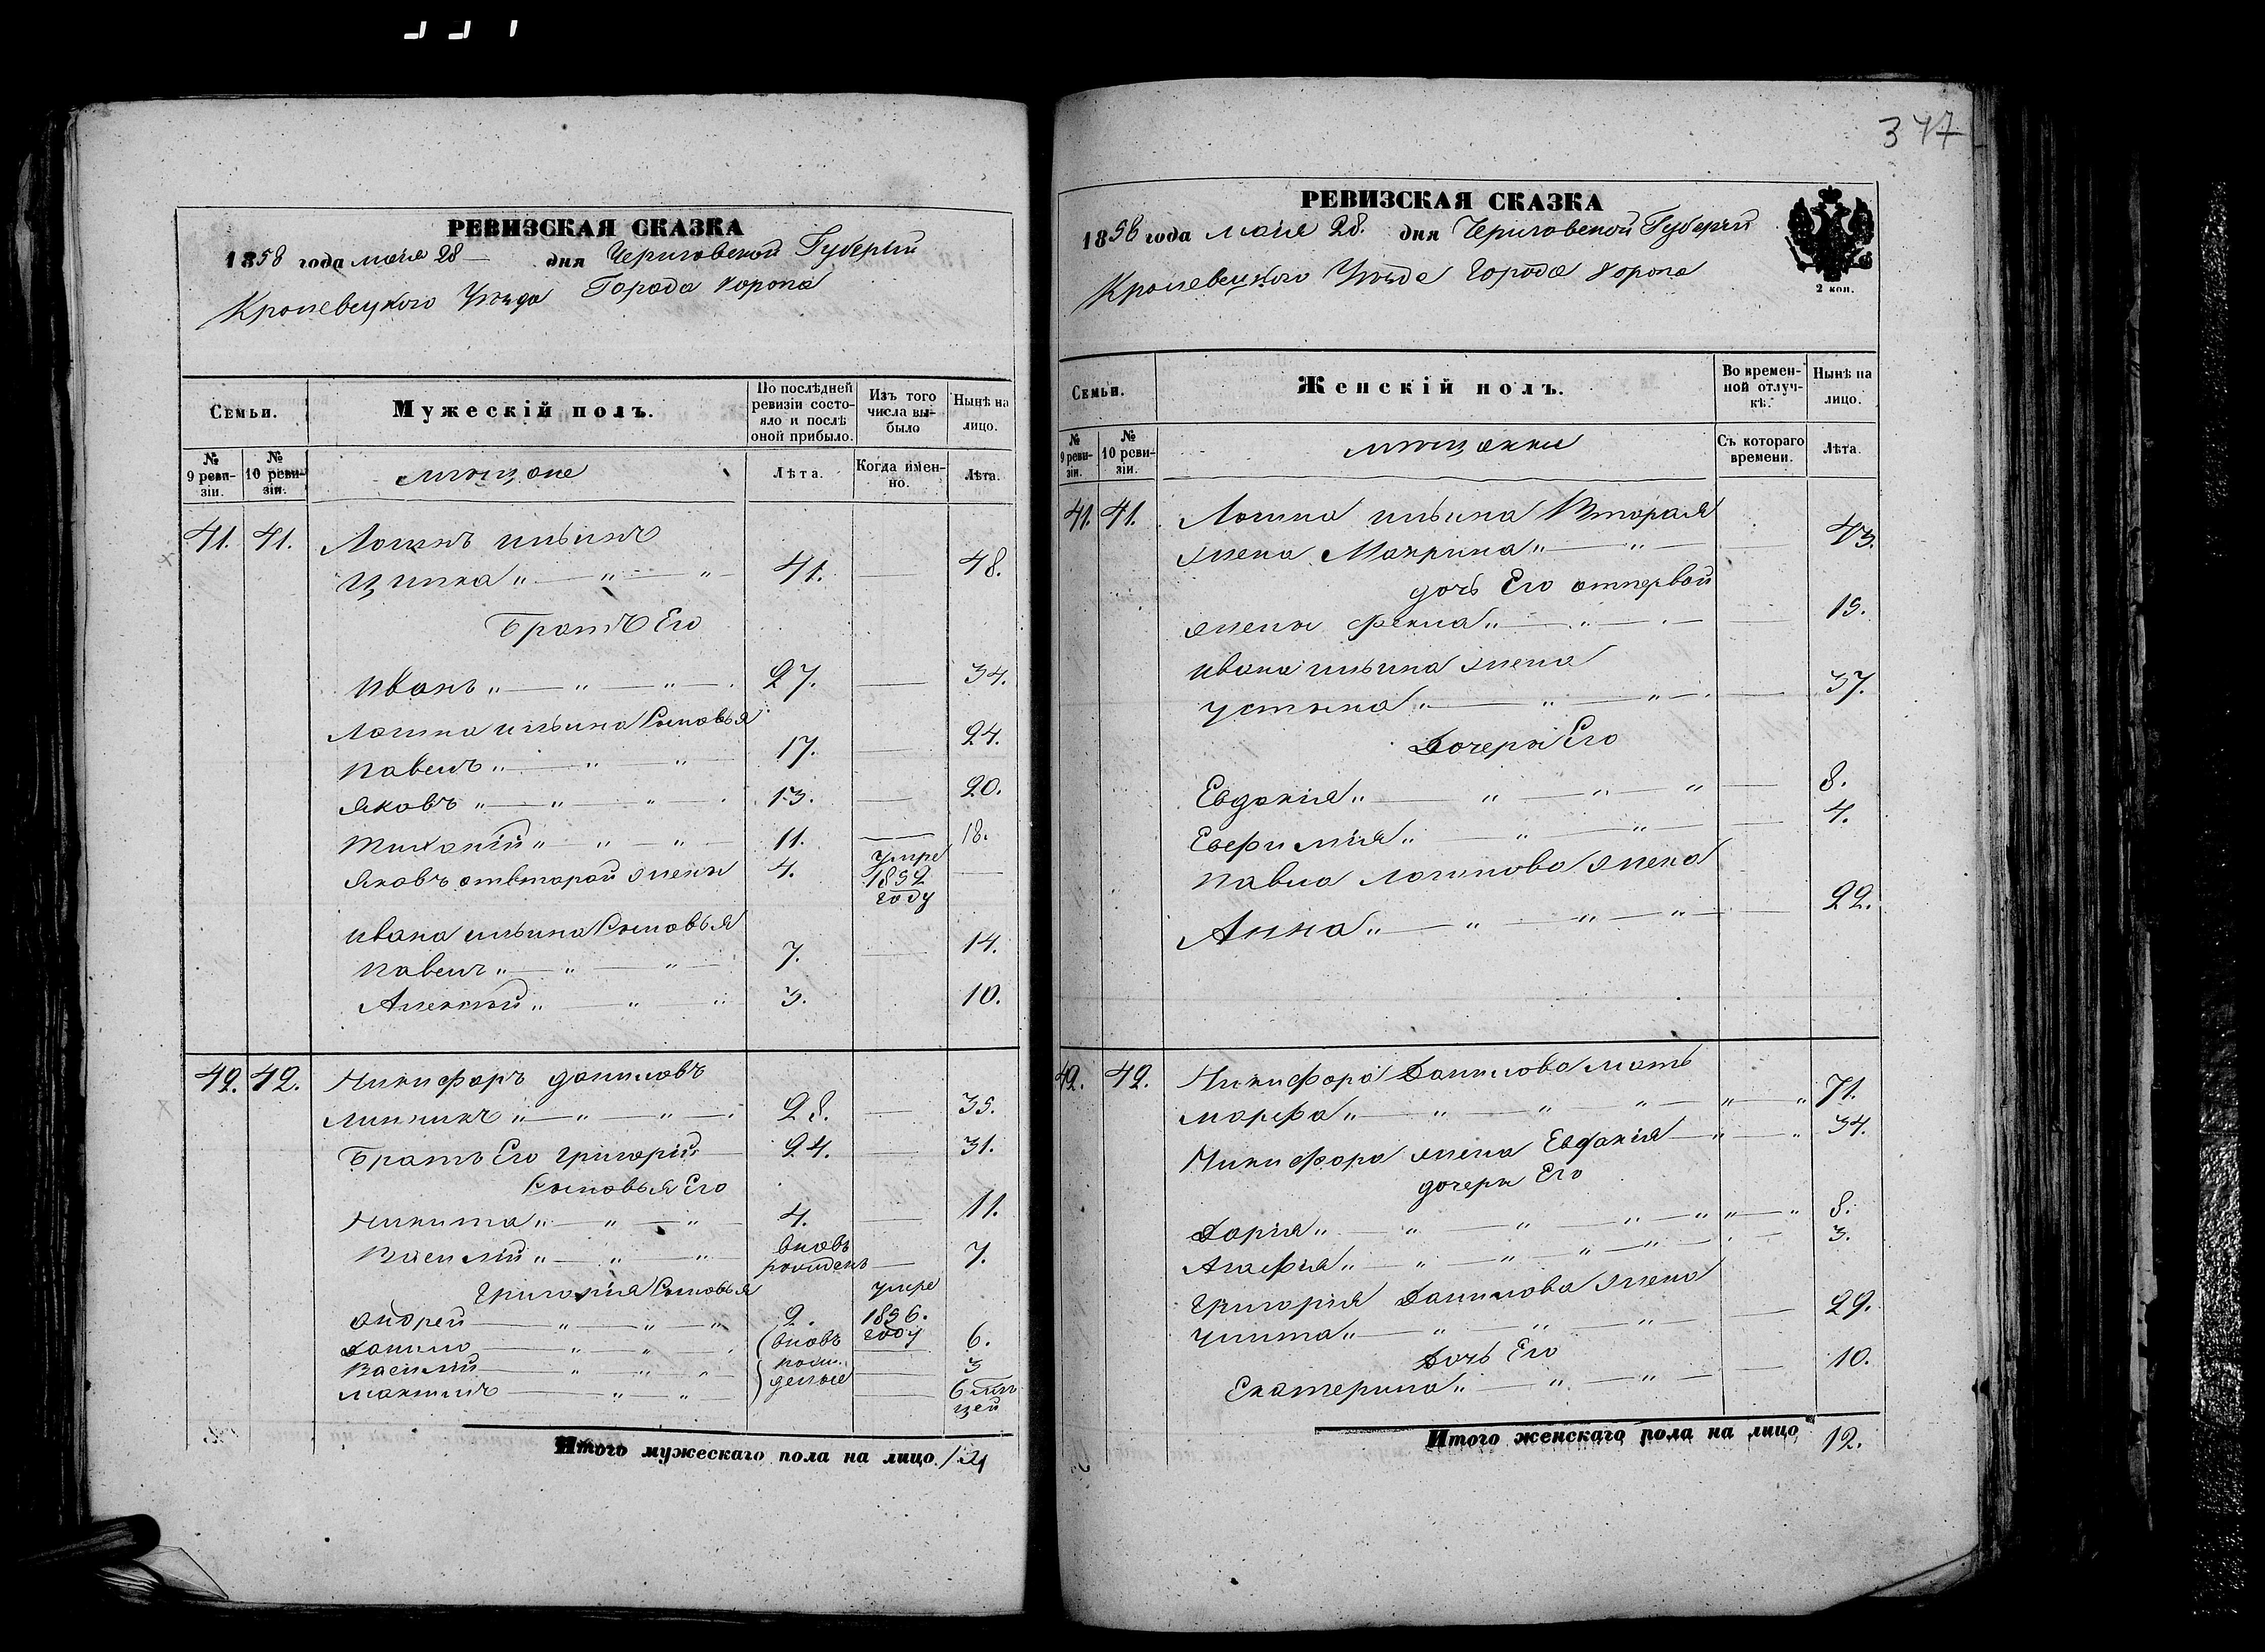 РЕВИЗСКАЯ СКАЗКА
1858 года мая 28 дня Черниговской Губерніи
Кролевецкого Уѣзда Города Коропа
Семьи. Мужескій полъ. По послѣдней ревизіи состояло и послѣ оной прибыло. Изъ того числа выбыло Нынѣ на лицо.
№ 9 ревизіи. № 10 ревизіи. мѣщане Лѣта. Когда именно. Лѣта.
41. 41. Логинъ ильинъ
41. 48.
Братъ Его
Иванъ 27. 34.
Логина ильина Сыновья
Павелъ 17. 24.
Яковъ 13. 20.
Тихоній 11. 18.
Яковъ отвторой жены 4. умре 1852 году
Ивана ильина Сыновья
Павелъ 7. 14.
Алексѣй 3. 10.
42. 42. Никифоръ даниловъ
Линникъ 28. 35.
Братъ Его григорій 24. 31.
Сыновья Его
Никита 4. 11.
Василій вновь рожденъ 7.
Григорія Сыновья
Андрей 2. умре 1856. году
Данило вновь рожденые 6.
Василій 3
Максимъ 6 мѣсцей
Итого мужескаго пола на лицо 14
347
РЕВИЗСКАЯ СКАЗКА
1858 года мая 28. дня Черниговской Губерніи
Кролевецкого Уѣзда Города Коропа
2 коп.
Семьи. Женскій полъ. Во временной отлучкѣ. Нынѣ на лицо.
№ 9 ревизіи. № 10 ревизіи. мѣщанки Съ котораго времени. Лѣта.
41. 41. Логина ильина Вторая
жена Макрина 43.
дочь Его отпервой
жены Фекла 15.
Ивана ильина жена
Устына 37.
Дочери Его
Евдокія 8.
Евфимія 4.
Павла Логинова жена
Анна 22.
42. 42. Никифора Данилова мать
марфа 71.
Никифора жена Евдокія 34.
дочери Его
Дарія 8.
Агафія 3.
Григорія Данилова жена
Улита 29.
Дочь Его
Екатерина 10.
Итого женскаго пола на лицо 12.